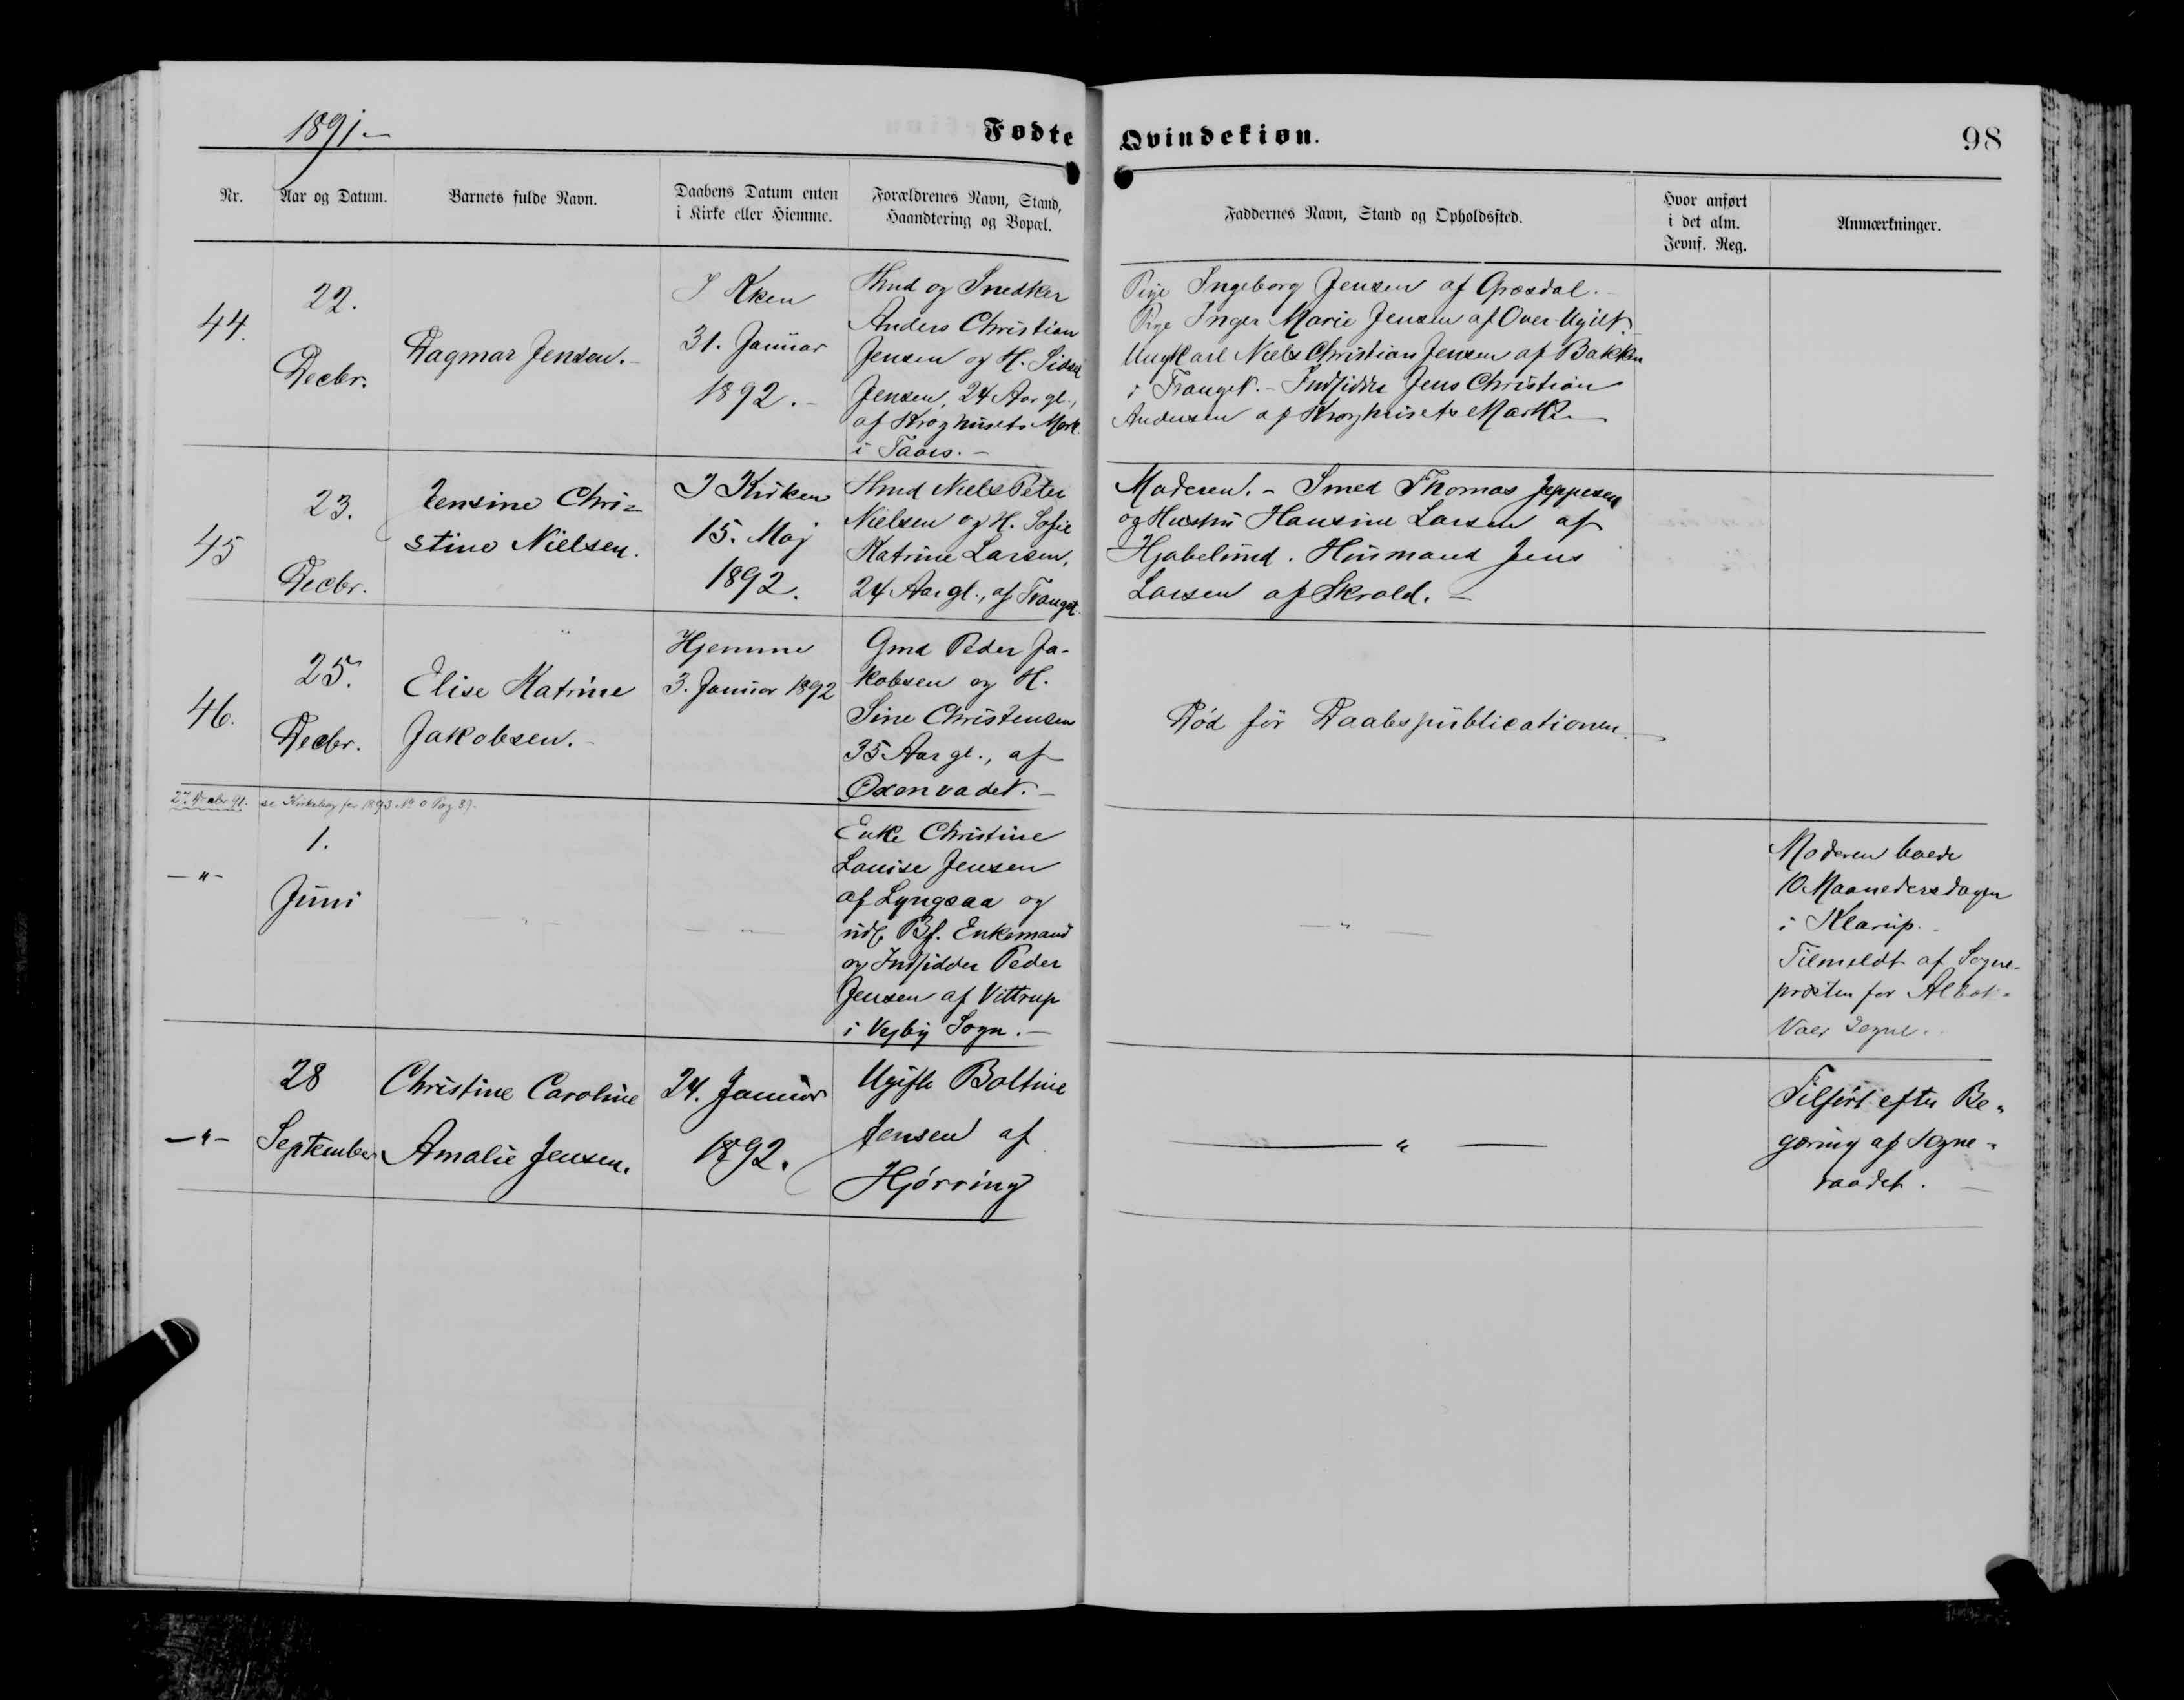 1891.-
Fødte Qvindekiøn.
98
Nr.
Aar og Datum.
Barnets fulde Navn.
Daabens Datum enten
i Kirke eller Hiemme.
Forældrenes Navn, Stand,
Haandtering og Bopæl.
Faddernes Navn, Stand og Opholdssted.
Hvor anført
i det alm.
Jevnf. Reg.
Anmærkninger.
44.
22.
Decbr.
Dagmar Jensen.-
I Kken
31. Januar
1892.-
Hmd og Snedker
Anders Christian
Jensen og H. Sidsel
Jensen, 24 Aar gl.,
af Kroghusets Mark
i Taars.-
Pige Ingeborg Jensen af Græsdal.-
Pige Inger Marie Jensen af Over-Ugilt.-
Ungkarl Niels Christian Jensen af Bakken
i Tranget.- Indsidder Jens Christian
Andersen af Kroghusets Mark.-
45
23.
Decbr.
Jensine Chri=
stine Nielsen.
I Kirken
15. Maj
1892.
Hmd Niels Peter
Nielsen og H. Sofie
Katrine Larsen,
24 Aar gl., af Tranget.
Moderen.- Smed Thomas Jeppesen
og Hustru Hansine Larsen af
Hjabelund. Husmand Jens
Larsen af Skrold.-
46.
25.
Decbr.
Elise Katrine
Jakobsen.-
Hjemme
3. Januar 1892
Gmd Peder Ja-
kobsen og H.
Sine Christensen
35 Aar gl., af
Oxenvadet.-
Død før Daabspublicationen.
27. Decbr 91. se Kirkebog for 1893 No 0 Pag 89.
-"-
1.
Juni
-"-
-"-
Enke Christine
Louise Jensen
af Lyngsaa og
udl. Bf. Enkemand
og Indsidder Peder
Jensen af Vittrup
i Vejby Sogn.-
-"-
Moderen boede
10 Maanedersdagen
i Klarup.
Tilmeldt af Sogne-
præsten for Albæk-
Voer Sogne.
-"-
28
September
Christine Caroline
Amalie Jensen.
24. Januar
1892.
Ugifte Boltine
Jensen af
Hjørring
-"-
Tilført efter Be-
gæring af Sogne-
raadet.-